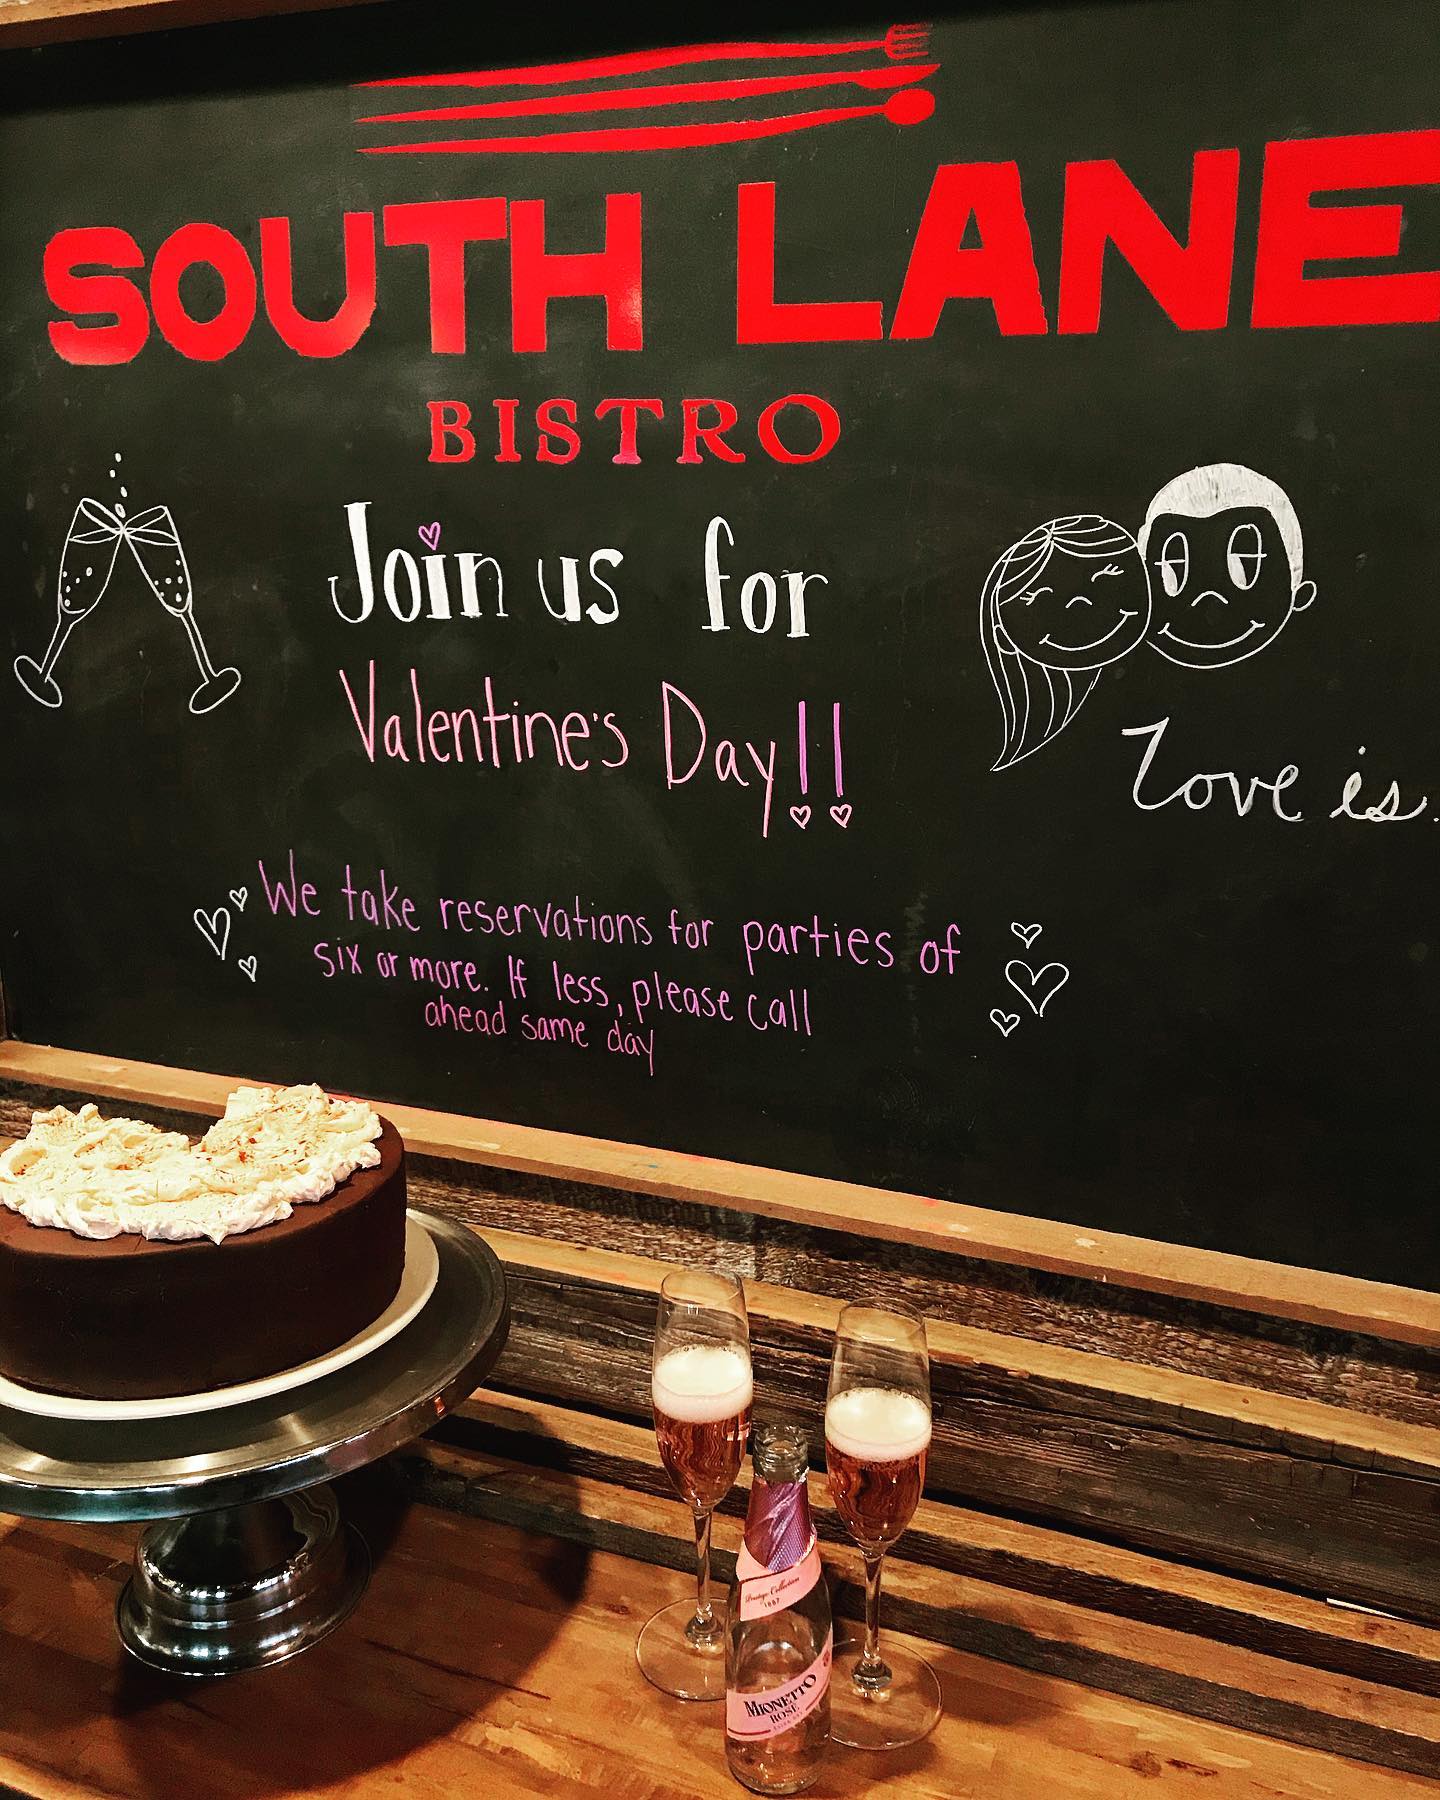 SOUTH LANE
BISTRO
Join us for
Valentine's Day!!
Love is.
We take reservations for parties of
six or more. If less, please call
ahead same day
Prestige Collection
1887
MIONETTO
ROSÉ
EXTRA DRY